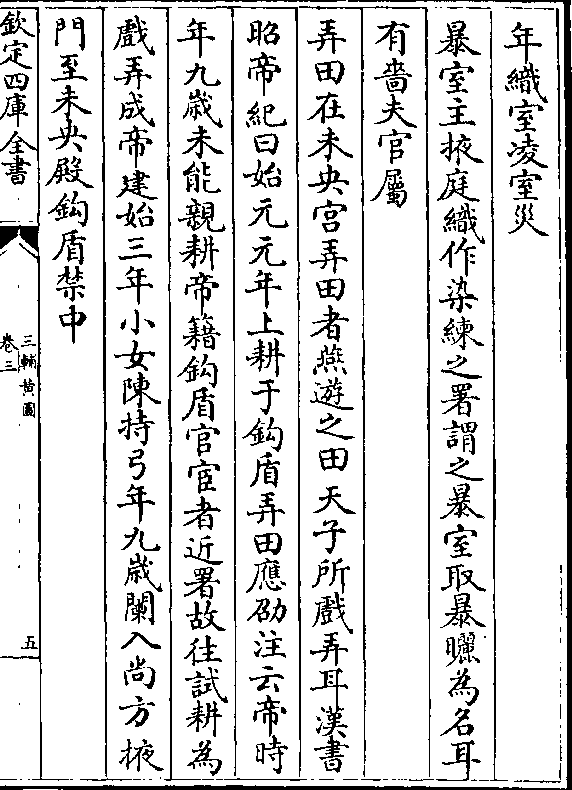 年織室凌室災
暴室主掖庭織作染練之署謂之暴室取暴曬為名耳
有嗇夫官屬
弄田在未央宫弄田者燕遊之田天子所戲弄耳漢書
昭帝紀曰始元元年上耕于鈎盾弄田應劭注云帝時
年九歲未能親耕帝籍鈎盾官宦者近署故往試耕為
戲弄成帝建始三年小女陳持弓年九歲闌入尚方掖
門至未央殿鈎盾禁中
欽定四庫全書
三輔黄圖
卷三
五